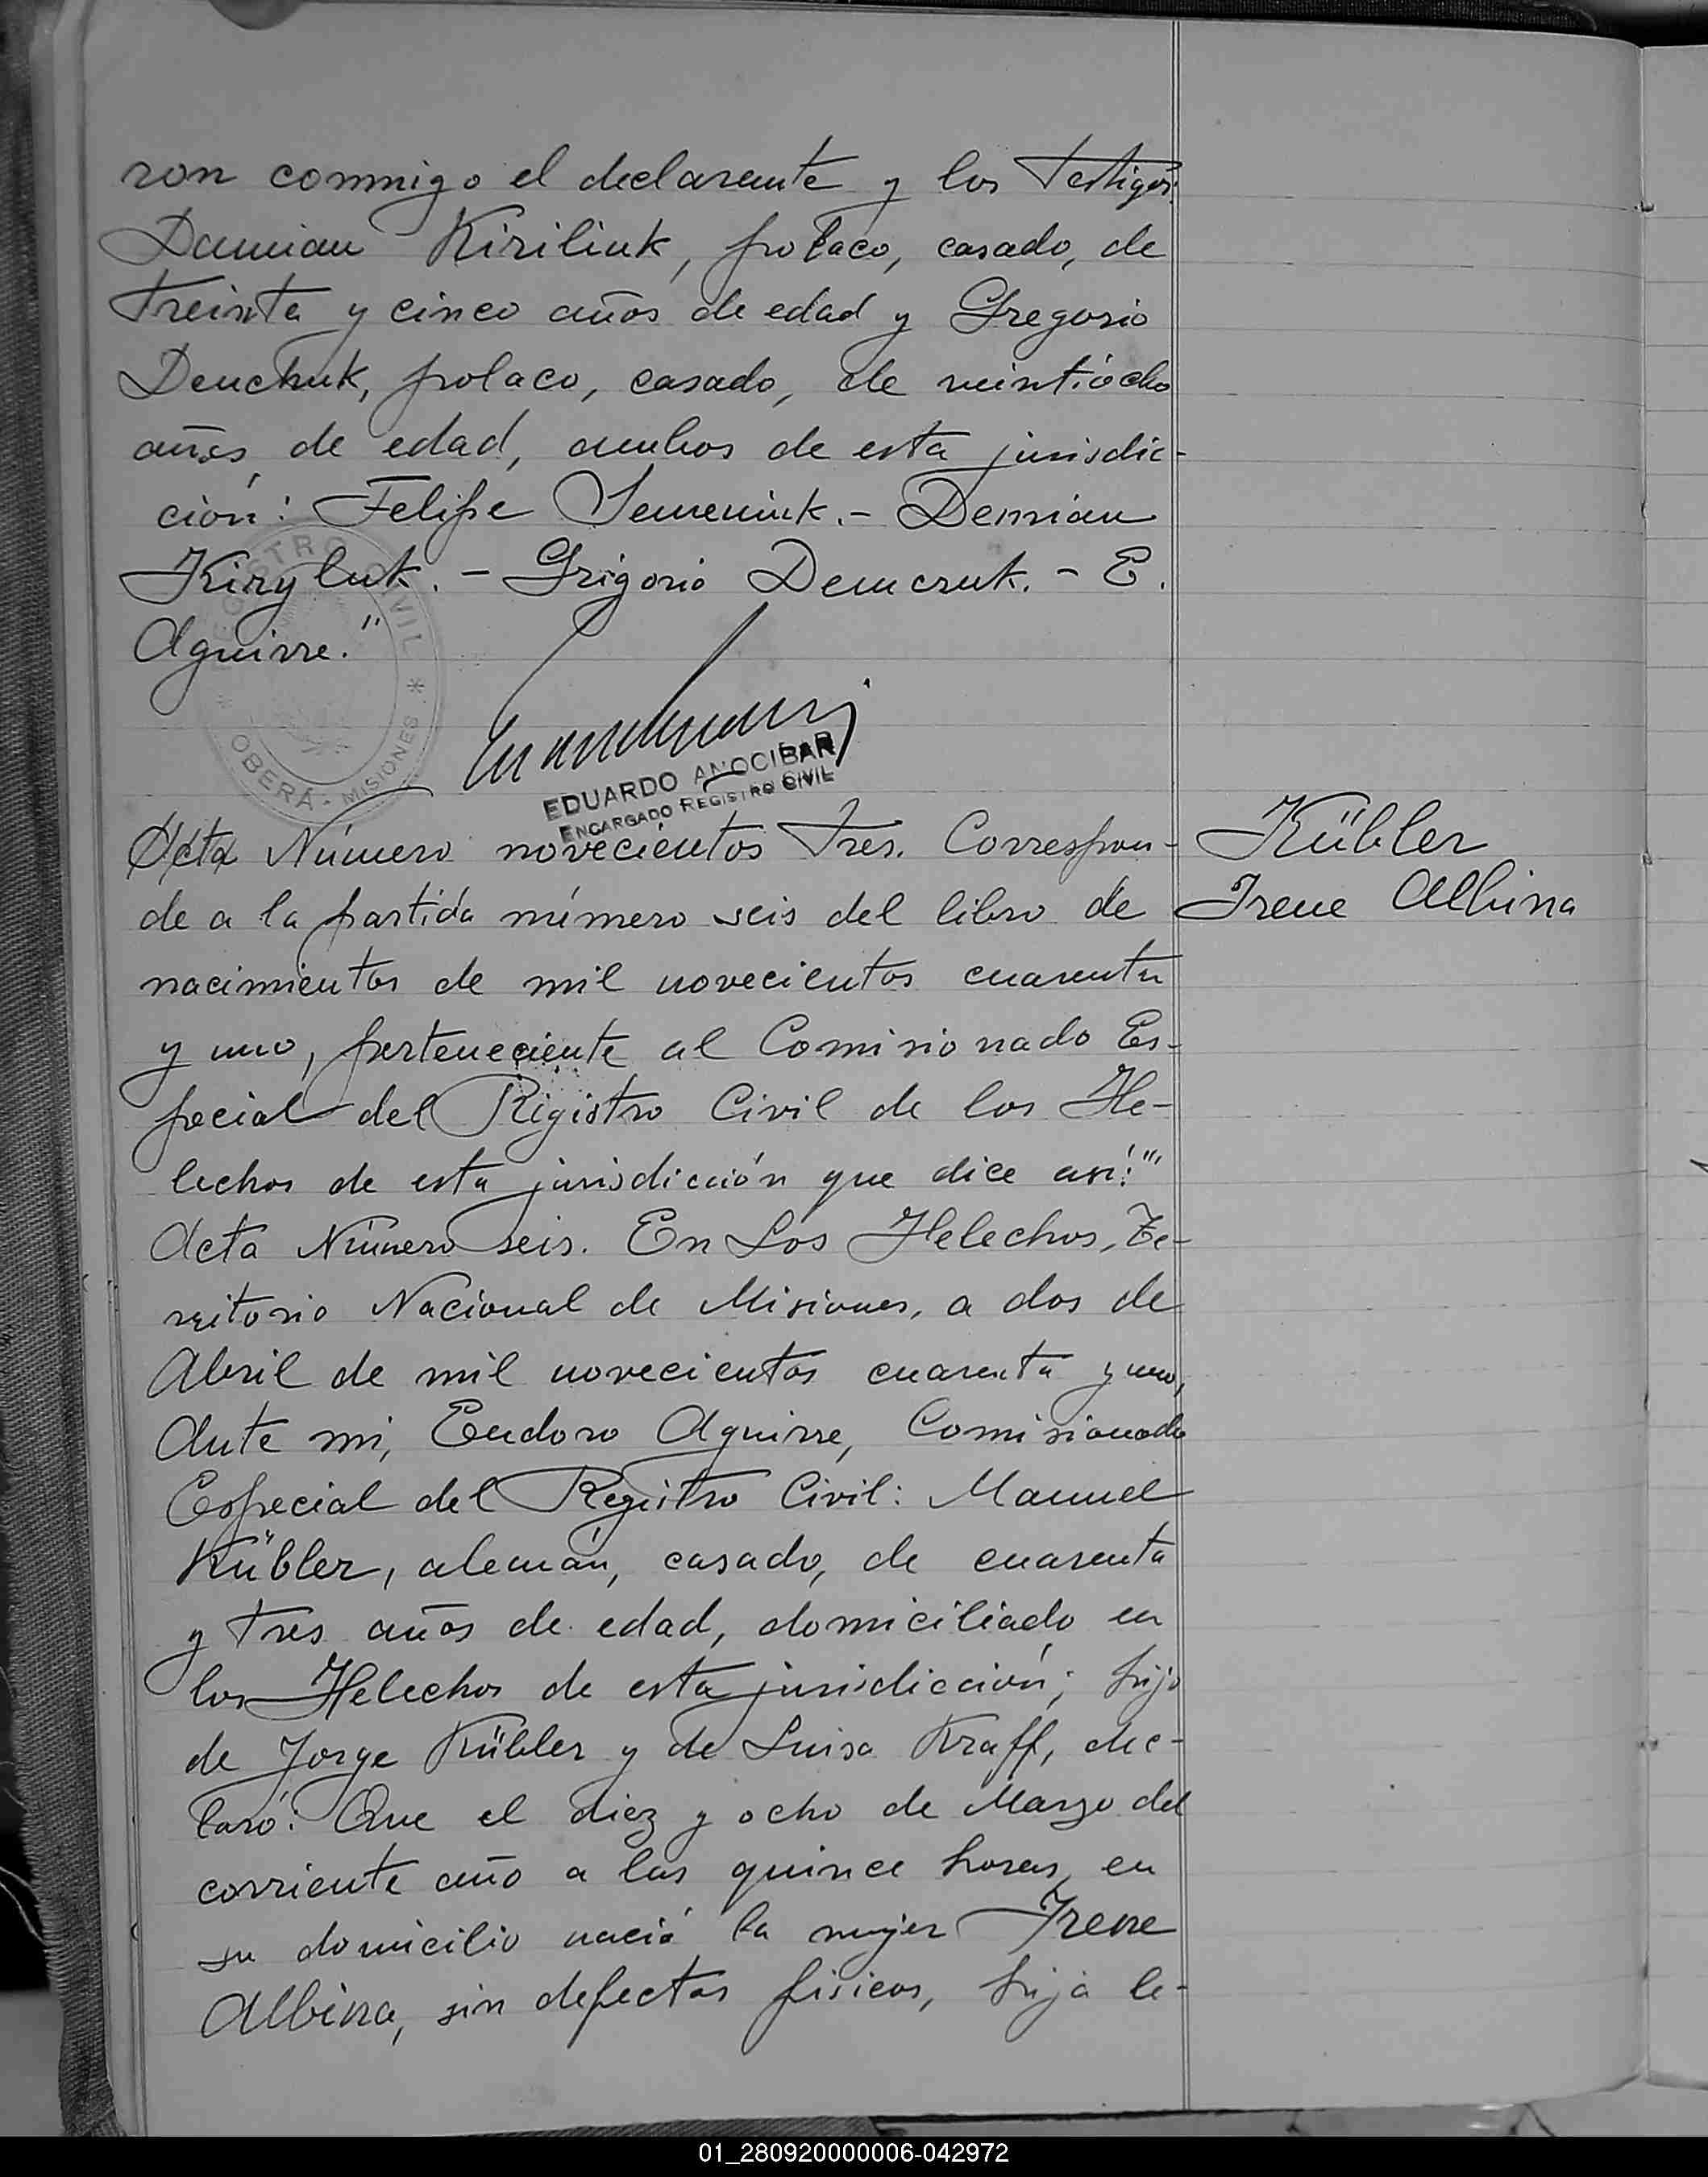 ron conmigo el declarante y los Testigos:
Damian Kiriliuk, polaco, casado, de
Treinta y cinco años de edad y Gregorio
Denchuk, polaco, casado, de veintiocho
años de edad, ambos de esta jurisdic-
ción: Felipe Semeniuk.- Demián
Kiryluk. - Grigorio Demczuk. - E.
Aguirre."
REGISTRO CIVIL
* OBERÁ - MISIONES *
EDUARDO ANOCIBAR
ENCARGADO REGISTRO CIVIL
Acta Número novecientos Tres. Correspon-
de a la partida número seis del libro de
nacimientos de mil novecientos cuarenta
y uno, perteneciente al Comisionado Es-
pecial del Rigistro Civil de los He-
lechos de esta jurisdicción que dice así:"
Acta Número seis. En Los Helechos, Te-
rritorio Nacional de Misiones, a dos de
Abril de mil novecientos cuarenta y uno,
Ante mi, Eudoro Aguirre, Comisionado
Especial del Registro Civil: Manuel
Kübler, alemán, casado, de cuarenta
y Tres años de edad, domiciliado en
los Helechos de esta jurisdicción; hijo
de Jorge Kübler y de Luisa Kraff, dec-
laró: Que el diez y ocho de Marzo del
corriente año a las quince horas, en
su domicilio nació la mujer Irene
Albina, sin defectos físicos, hija le-
Kübler
Irene Albina
01_280920000006-042972